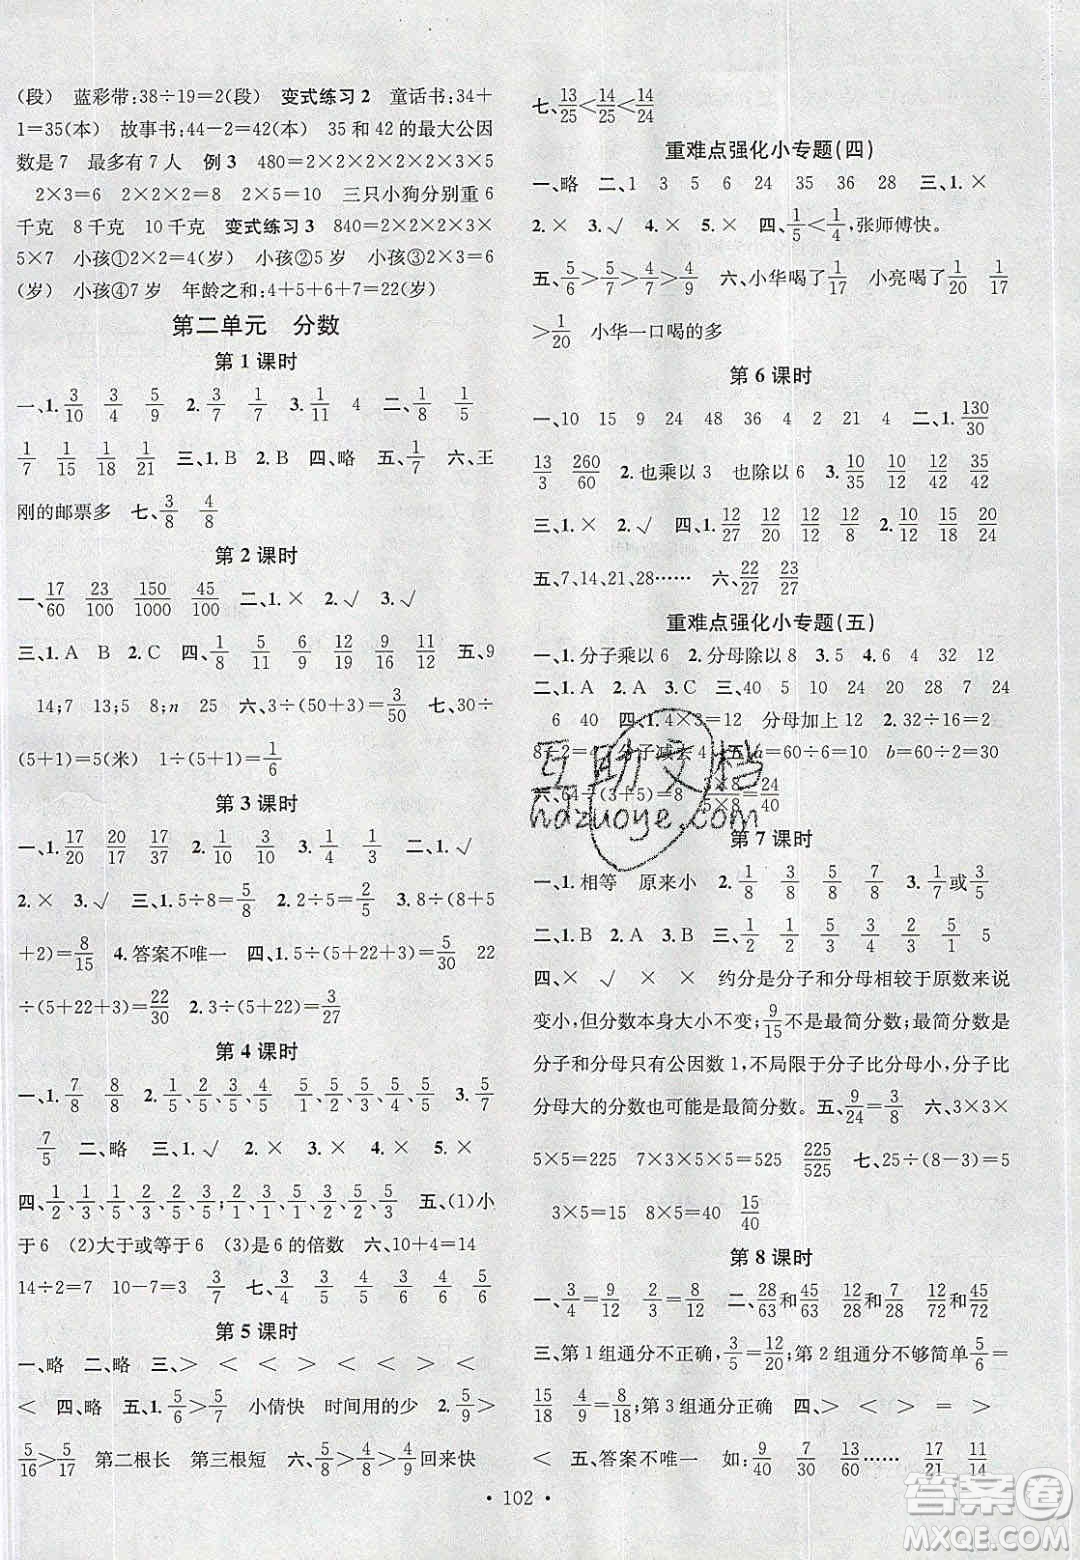 (段) 蓝彩带:38÷19=2(段) 变式练习2 童话书:34+
1=35(本) 故事书:44-2=42(本) 35和42的最大公因
数是7 最多有7人 例3 480=2×2×2×2×2×3×5
2×3=6 2×2×2=8 2×5=10 三只小狗分别重6
千克 8千克 10千克 变式练习3 840=2×2×2×3
×5×7 小孩①2×2=4(岁) 小孩②5岁 小孩③2×3=6
(岁) 小孩④7岁 年龄之和:4+5+6+7=22(岁)
第二单元 分数
第1课时
一、1. 3/10 3/4 5/9 2. 3/7 1/7 3. 1/11 4 二、1/8 1/5
1/7 1/15 1/18 1/21 三、1.B 2.B 四、略 五、1/7 六、王
刚的邮票多 七、3/8 4/8
第2课时
一、17/60 23/100 150/1000 45/100 二、1.× 2.√ 3.√
三、1.A B 2.C 四、1/8 5/11 6/9 12/19 9/16 五、9
14;7 13;5 8;n 25 六、3÷(50+3)=3/50 七、30÷
(5+1)=5(米) 1÷(5+1)=1/6
第3课时
一、1. 17/20 20/17 17/37 2. 1/10 3/10 3. 1/4 1/3 二、1.√
2.× 3.√ 三、1.5÷8=5/8 2.2÷5=2/5 3.8÷(8+5
+2)=8/15 4.答案不唯一 四、1.5÷(5+22+3)=5/30 22
÷(5+22+3)=22/30 2.3÷(3+2+22)=3/27
第4课时
一、1. 7/8 8/8 2. 1/5、2/5、3/5、4/5 5/5、6/5、7/5 3. 5/7
7/5 二、略 三、1.√ 2.× 3.× 4.× 5.×
四、1/2、1/3、1/5、2/3、2/5、3/5;2/1、3/1、5/1、3/2、5/2、5/3 五、(1)小
于6 (2)大于或等于6 (3)是6的倍数 六、10+4=14
14÷2=7 10-7=3 3/7 七、1/4、2/4、3/4、4/4、5/4、6/4、7/4
第5课时
一、略 二、略 三、> < < > < < > <
< 四、略 五、1. 5/6>5/7 小倩快 时间用的少 2. 5/9>
5/16>5/17 第二根长 第三根短 六、3/8>3/14 回来快
· 102 ·
七、13/25<14/25<14/24
重难点强化小专题(四)
一、略 二、1 3 5 6 24 35 36 28 三、1.×
2.× 3.√ 4.× 5.× 四、1/5<1/4,张师傅快。
五、5/6>5/7>5/9 六、小华喝了1/4 小亮喝了1/20 1/4
>1/20 小华一口喝的多
第6课时
一、10 15 9 24 48 36 4 2 21 4 二、1. 130/30
13/3 260/60 2.也乘以3 也除以6 3. 10/35 10/15 20/48 12/42 35/42
三、1.× 2.√ 四、1. 12/27 12/16 12/18 12/42 2. 10/24 15/24 20/24
五、7,14,21,28…… 六、22/27 23/27
重难点强化小专题(五)
一、1.分子乘以6 2.分母除以8 3.5 4.6 4 32 12
二、1.A 2.A 3.C 三、40 5 10 24 28 7 24
6 40 四、1.4×3=12 分母加上12 2.32÷16=2
8÷2=4 分子减去4 五、a=60÷6=10 b=60÷2=30
六、64÷(3+5)=8 3×8/5×8=24/40
第7课时
一、1.相等 原来小 2. 1/8 3/8 5/8 7/8 3. 1/7或3/5
二、1.B 2.B 三、1/2 1/2 5/3 2/3 5/1 5
四、× √ × × 约分是分子和分母相较于原数来说
变小,但分数本身大小不变;9/15不是最简分数;最简分数的
分子和分母只有公因数1,不局限于分子比分母小,分子比
分母大的分数也可能是最简分数。 五、9/24=3/8 六、3×3×
5×5=225 7×3×5×5=525 225/525 七、25÷(8-3)=5
3×5=15 8×5=40 15/40
第8课时
一、3/4=9/12 2/3=8/12 二、28/63和15/63 12/28和7/28 2/72和45/72
三、第1组通分不正确,3/5=12/20 第2组通分不够简单5/6=
15/18 4/9=8/18 第3组通分正确 四、> < > = <
< 五、答案不唯一 如:9/40 12/50 13/60……
互助文档
hdzuoye.com
答案圈
MXQE.COM